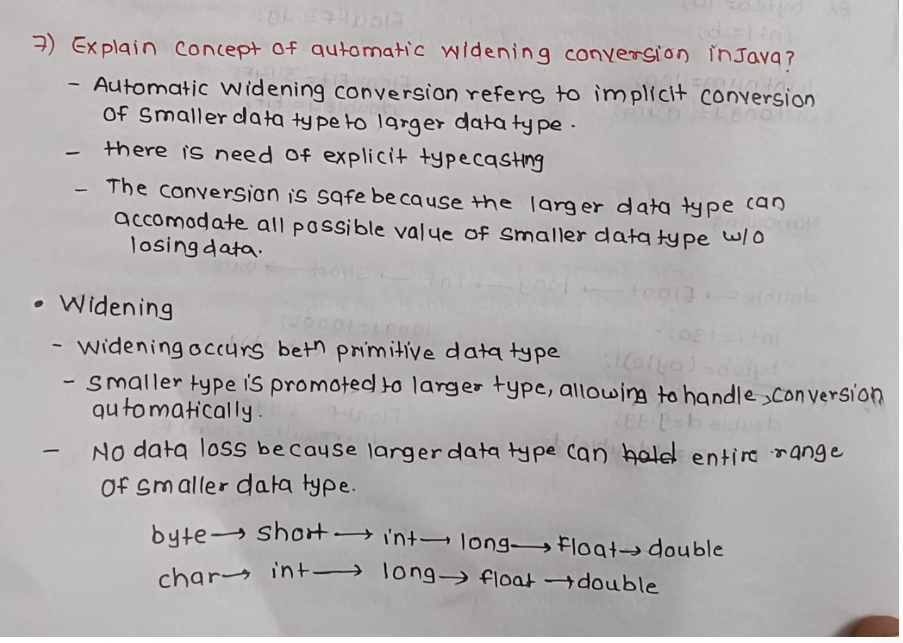 7) Explain concept of automatic widening conversion in Java?
- Automatic widening conversion refers to implicit conversion
of smaller data type to larger data type.
- there is need of explicit typecasting
- The conversion is safe because the larger data type can
accomodate all possible value of smaller data type w/o
losing data.
• Widening
- Widening occurs betn primitive data type
- smaller type is promoted to larger type, allowing to handle conversion
automatically.
- No data loss because larger data type can hold entire range
of smaller data type.
byte → short → int → long → float → double
char → int → long → float → double